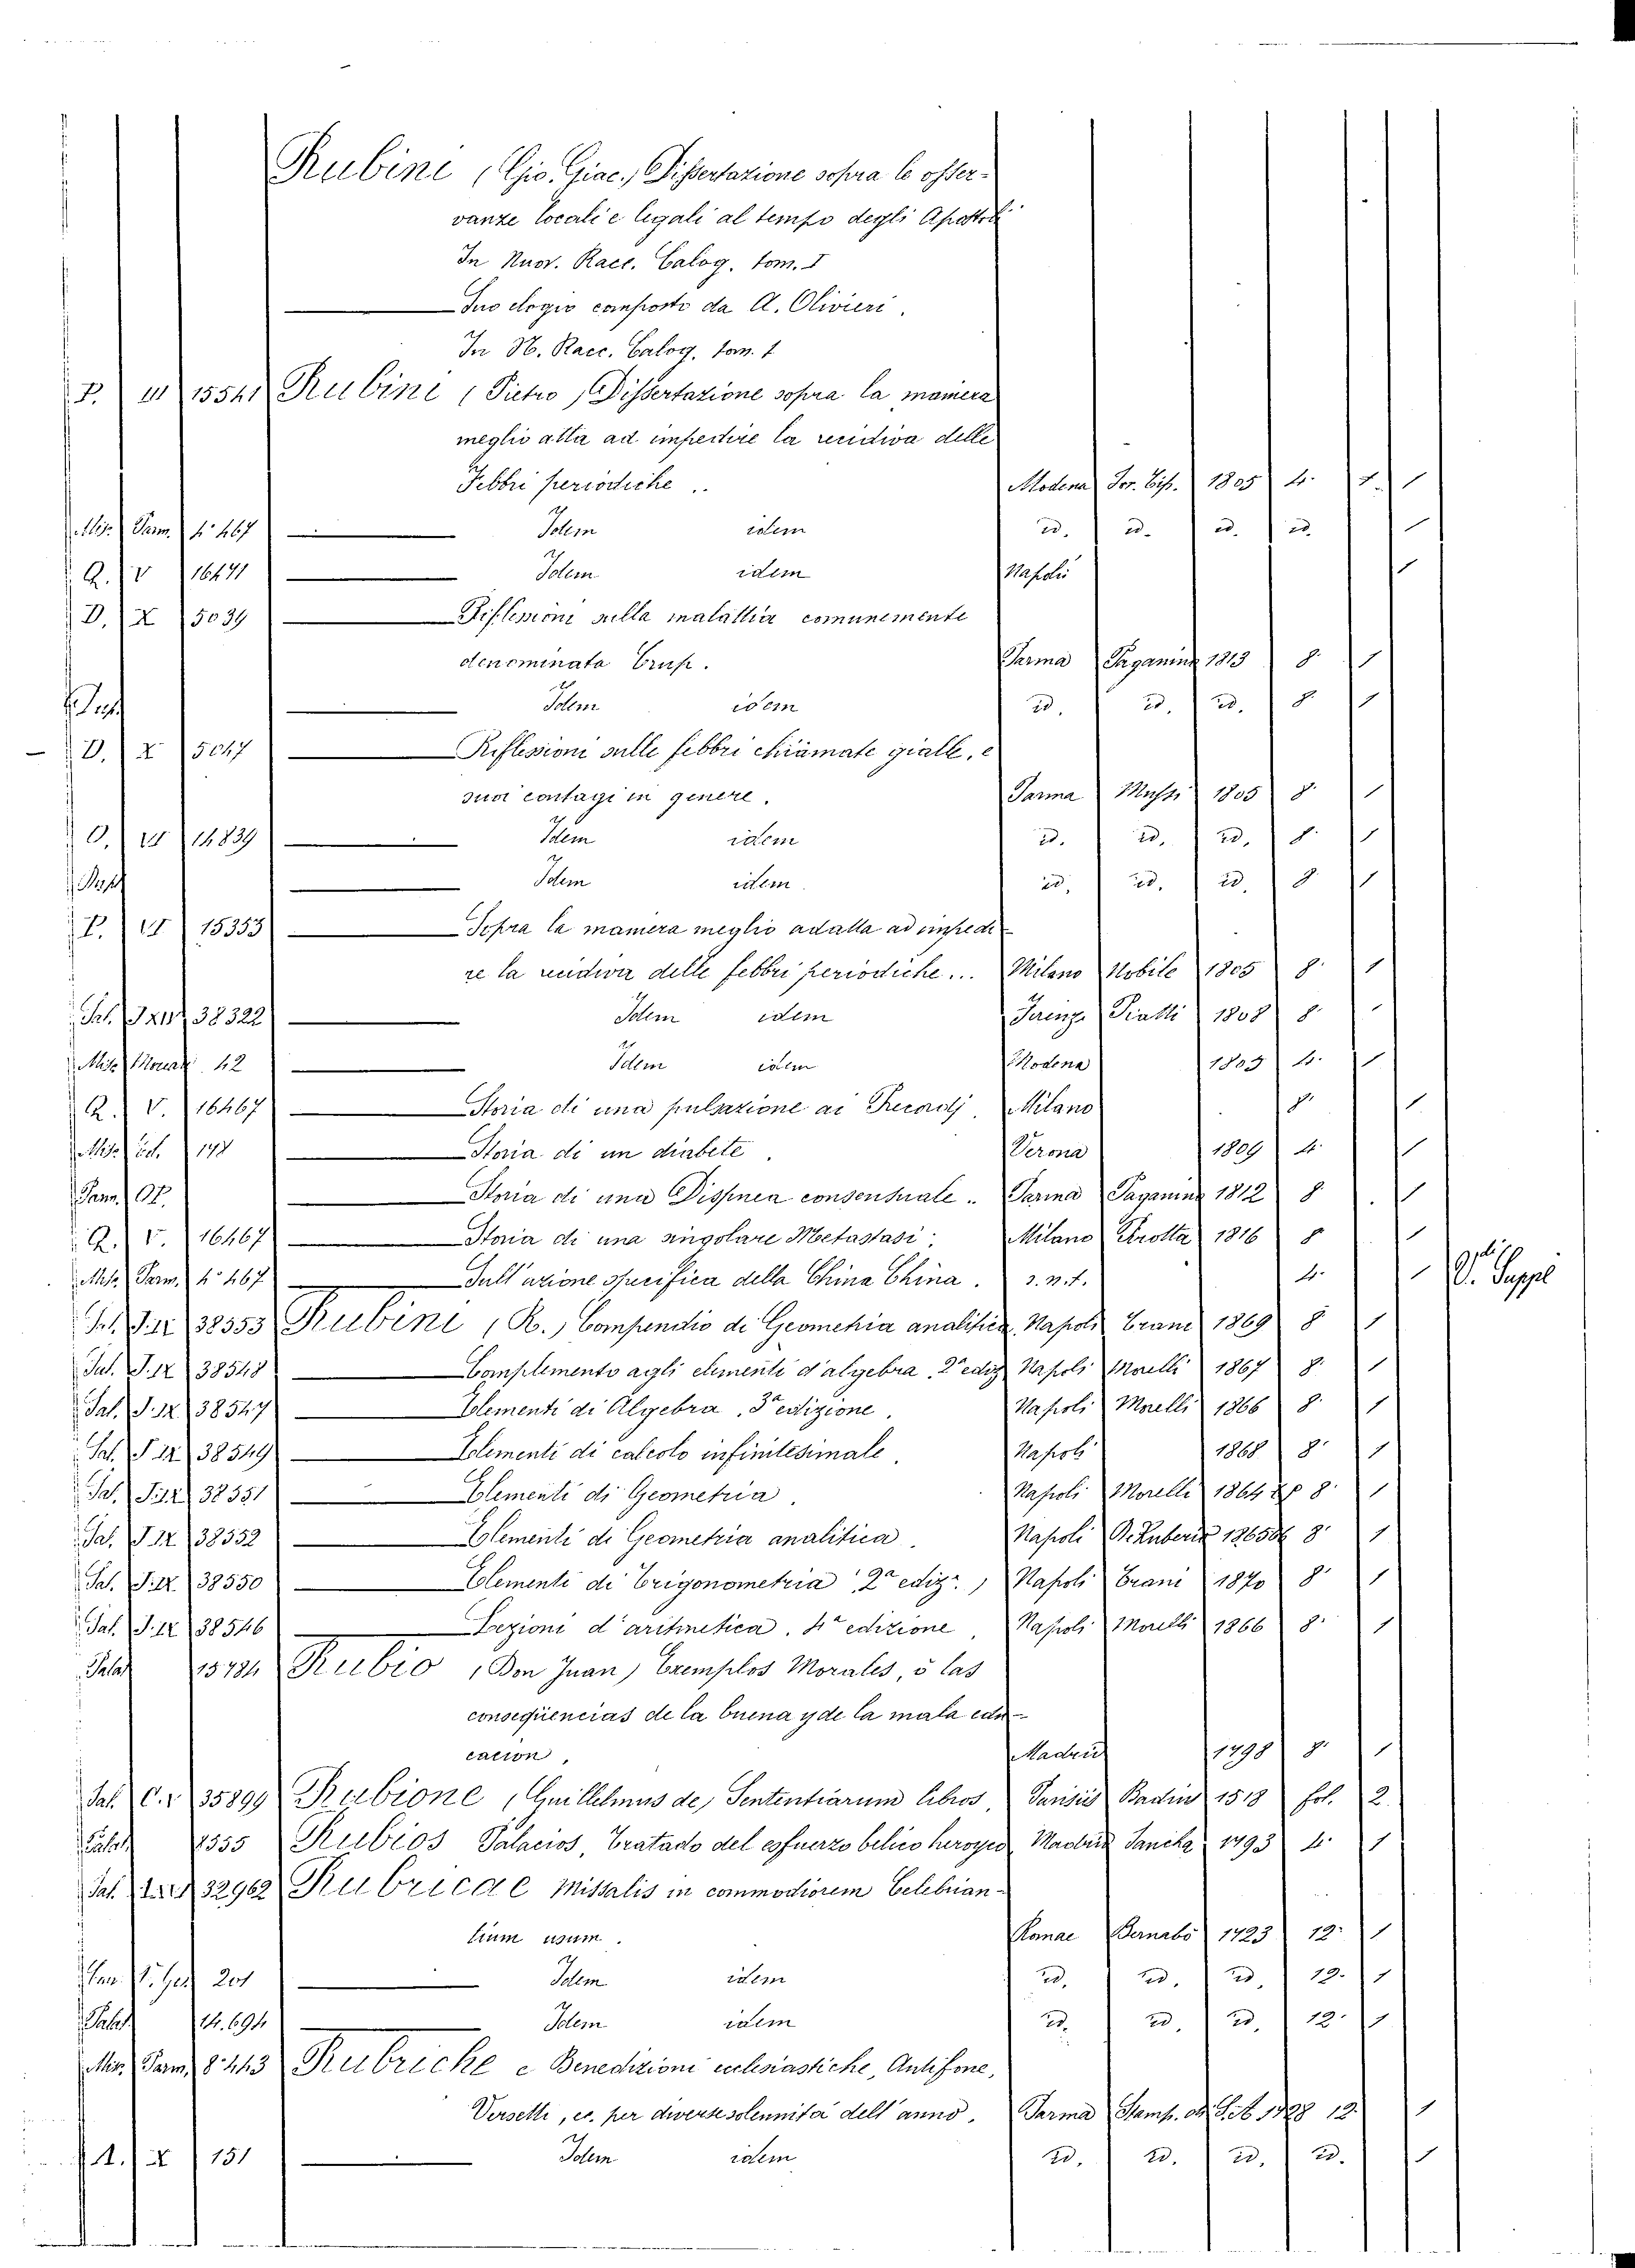 Rubini (Gio. Giac.) Dissertazione sopra le osser-
vanze locali e legali al tempo degli Apostoli
In Nuov. Racc. Calog. tom. I
Suo elogio composto da A. Olivieri.
In N. Racc. Calog. tom. 1
P. III 15541 Rubini (Pietro) Dissertazione sopra la maniera
meglio atta ad impedire la recidiva delle
Febbri periodiche .. Modena Soc. Tip. 1805 4. 1
Mis. Parm. 4° 467 Idem idem id. id. id. id. 1
Q. V 16471 Idem idem Napoli 1
D. X 5039 Riflessioni sulla malattia comunemente
denominata Crup. Parma Paganini 1813 8. 1
Idem idem id. id. id. 8. 1
D. X 5047 Riflessioni sulle febbri chiamate gialle, e
sui contagi in genere. Parma Mussi 1805 8. 1
O. VI 14839 Idem idem id. id. id. 8. 1
Idem idem id. id. id. 8 1
P. VI 15353 Sopra la maniera meglio adatta ad impedi-
re la recidiva delle febbri periodiche... Milano Nobile 1805 8. 1
Sal. 38322 Idem idem Firenze Piatti 1808 8. 1
Mis. 42 Idem idem Modena 1805 4. 1
Q. V. 16467 Storia di una pulsazione ai Precordj. Milano 8. 1
Mis. 148 Storia di un diabete. Verona 1809 4. 1
Parm. Storia di una Dispnea consensuale .. Parma Paganini 1812 8 1
Q. V. 16467 Storia di una singolare Metastasi. Milano Pirotta 1816 8 1
Mis. Parm. 4° 467 Sull'azione specifica della China China. s. n. t. 4. 1 V. Suppl
Sal. J. 12 38553 Rubini (R.) Compendio di Geometria analitica. Napoli Trani 1869 8 1
Sal. J. 12 38548 Complemento agli elementi d'algebra, 2ª ediz. Napoli Morelli 1867 8. 1
Sal. J. 12 38547 Elementi di Algebra, 3ª edizione. Napoli Morelli 1866 8. 1
Sal. J. 12 38549 Elementi di calcolo infinitesimale. Napoli 1868 8. 1
Sal. J. 12 38551 Elementi di Geometria. Napoli Morelli 1864 8. 1
Sal. J. 12 38552 Elementi di Geometria analitica. Napoli 1865 8. 1
Sal. J. 12. 38550 Elementi di Trigonometria 2ª ediz., Napoli Trani 1870 8. 1
Sal. J. 12 38546 Lezioni d'aritmetica, 4ª edizione, Napoli Morelli 1866 8. 1
Palat. 15784 Rubio (Don Juan) Exemplos Morales, ó las
conseqüencias de la buena y de la mala edu-
cacion. Madrid 1798 8. 1
Sal. C. 1 35899 Rubione (Guillelmus de) Sententiarum libros. Parisiis Badius 1518 fol. 2.
Palat. 1355 Rubios Palacios, Tratado del esfuerzo belico heroyco Madrid Sancha 1793 4. 1
Sal. 32962 Rubricae Missalis in commodiorem Celebran-
tium usum. Romae Bernabò 1723 12. 1
201 Idem idem id. id. id. 12. 1
Palat. 14.694 Idem idem id. id. id. 12. 1
Mis. Parm. 8° 443 Rubriche e Benedizioni ecclesiastiche, Antifone,
Versetti, ec. per diverse solennità dell'anno. Parma Stamp. 1728 12. 1
A. X 151 Idem idem id. id. id. id. 1